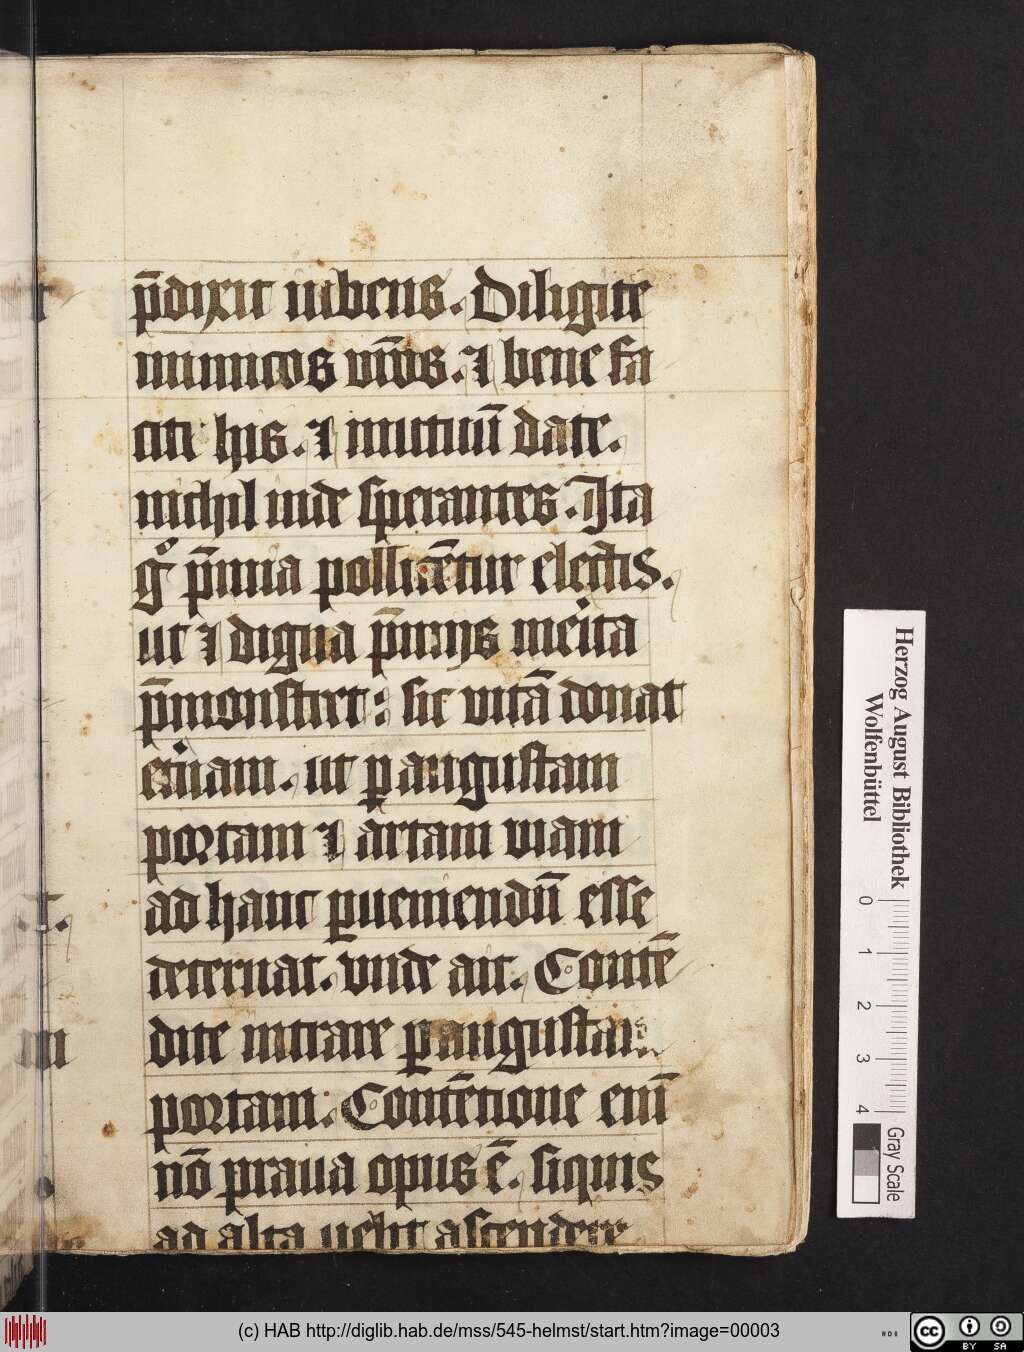 p̄dixit iubens. Diligite
inimicos vr̄os. ⁊ bene fa
citi his. ⁊ mutuū date.
nichil inde sperantes. Ita
gͦ p̄mia pollicēt̄ur electis.
ut ⁊ digna p̄mijs mei̇ta
p̄monstret : sic vitā donat
et̄nam. ut ꝑ angustam
portam ⁊ artam viam
ad hanc ꝑueniendū esse
decernat. vnde ait. Contē
dite intrare ꝑ angustam
portam. Contētione enī
nō praua opus ē. siquis
ad alta uelit ascendere
Herzog August Bibliothek
Wolfenbüttel
0 1 2 3 4
Gray Scale
(c) HAB http://diglib.hab.de/mss/545-helmst/start.htm?image=00003
cc BY SA